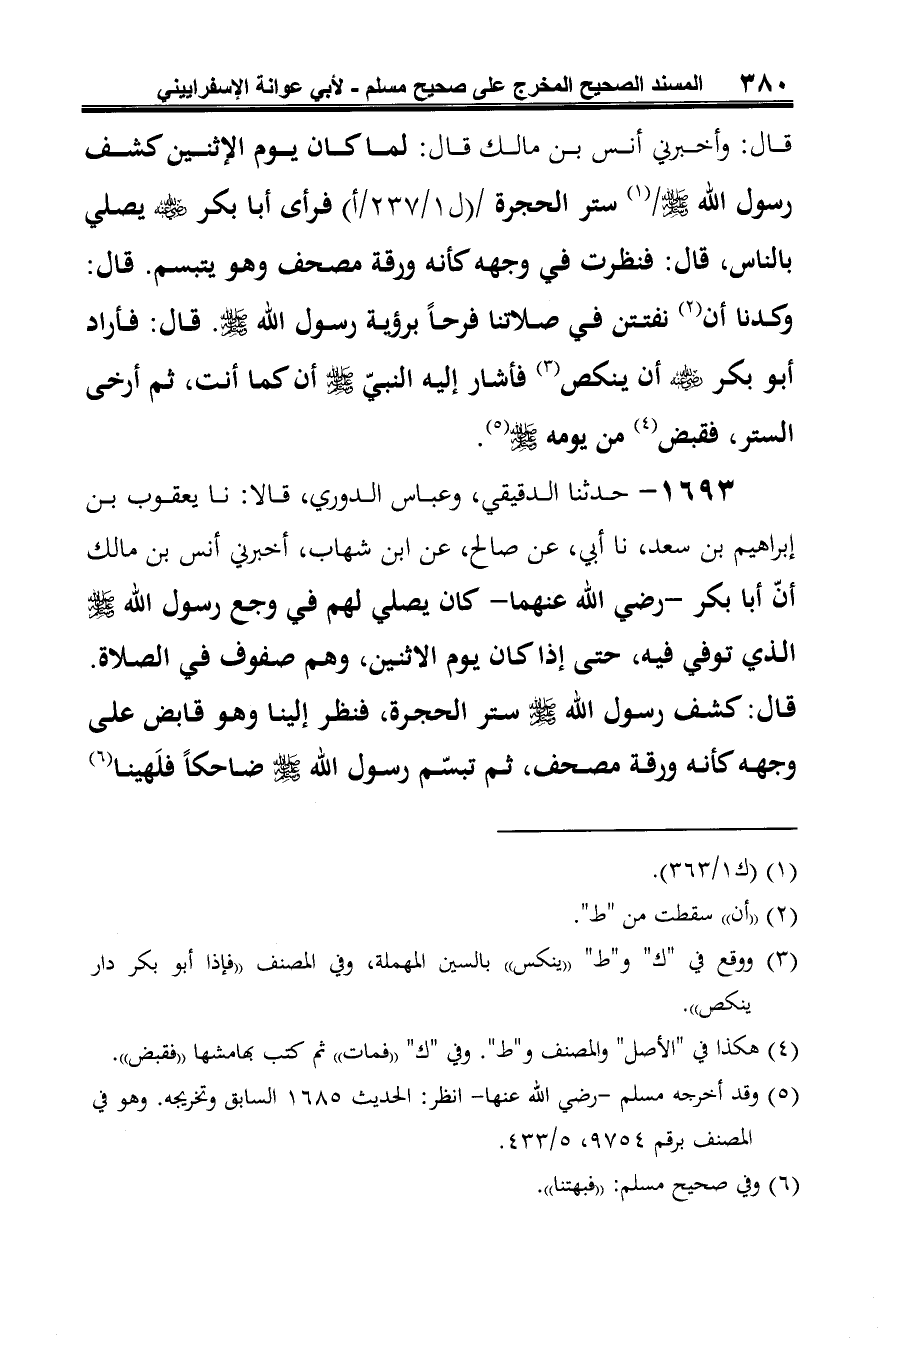 ٣٨٠ المسند الصحيح المخرج على صحيح مسلم - لأبي عوانة الإسفراييني
قال: وأخبرني أنس بن مالك قال: لما كان يوم الإثنين كشف
رسول الله ﷺ/(١) ستر الحجرة /(ل٢٣٧/١/أ) فرأى أبا بكر ﷺ يصلي
بالناس، قال: فنظرت في وجهه كأنه ورقة مصحف وهو يتبسم. قال:
وكدنا أن(٢) نفتتن في صلاتنا فرحاً برؤية رسول الله ﷺ. قال: فأراد
أبو بكر ﵁ أن ينكص(٣) فأشار إليه النبيّ ﷺ أن كما أنت، ثم أرخى
الستر، فقبض(٤) من يومه ﷺ(٥).
١٦٩٣- حدثنا الدقيقي، وعباس الدوري، قالا: نا يعقوب بن
إبراهيم بن سعد، نا أبي، عن صالح، عن ابن شهاب، أخبرني أنس بن مالك
أنّ أبا بكر -رضي الله عنهما- كان يصلي لهم في وجع رسول الله ﷺ
الذي توفي فيه، حتى إذا كان يوم الاثنين، وهم صفوف في الصلاة.
قال: كشف رسول الله ﷺ ستر الحجرة، فنظر إلينا وهو قابض على
وجهه كأنه ورقة مصحف، ثم تبسّم رسول الله ﷺ ضاحكاً فلَهينا(٦)
(١) (ك٣٦٣/١).
(٢) ((أن)) سقطت من "ط".
(٣) ووقع في "ك" و"ط" ((ينكس)) بالسين المهملة، وفي المصنف ((فإذا أبو بكر دار
ينكص)).
(٤) هكذا في "الأصل" والمصنف و"ط". وفي "ك" ((فمات)) ثم كتب بهامشها ((فقبض)).
(٥) وقد أخرجه مسلم -رضي الله عنها- انظر: الحديث ١٦٨٥ السابق وتخريجه. وهو في
المصنف برقم ٩٧٥٤، ٤٣٣/٥.
(٦) وفي صحيح مسلم: ((فبهتنا)).